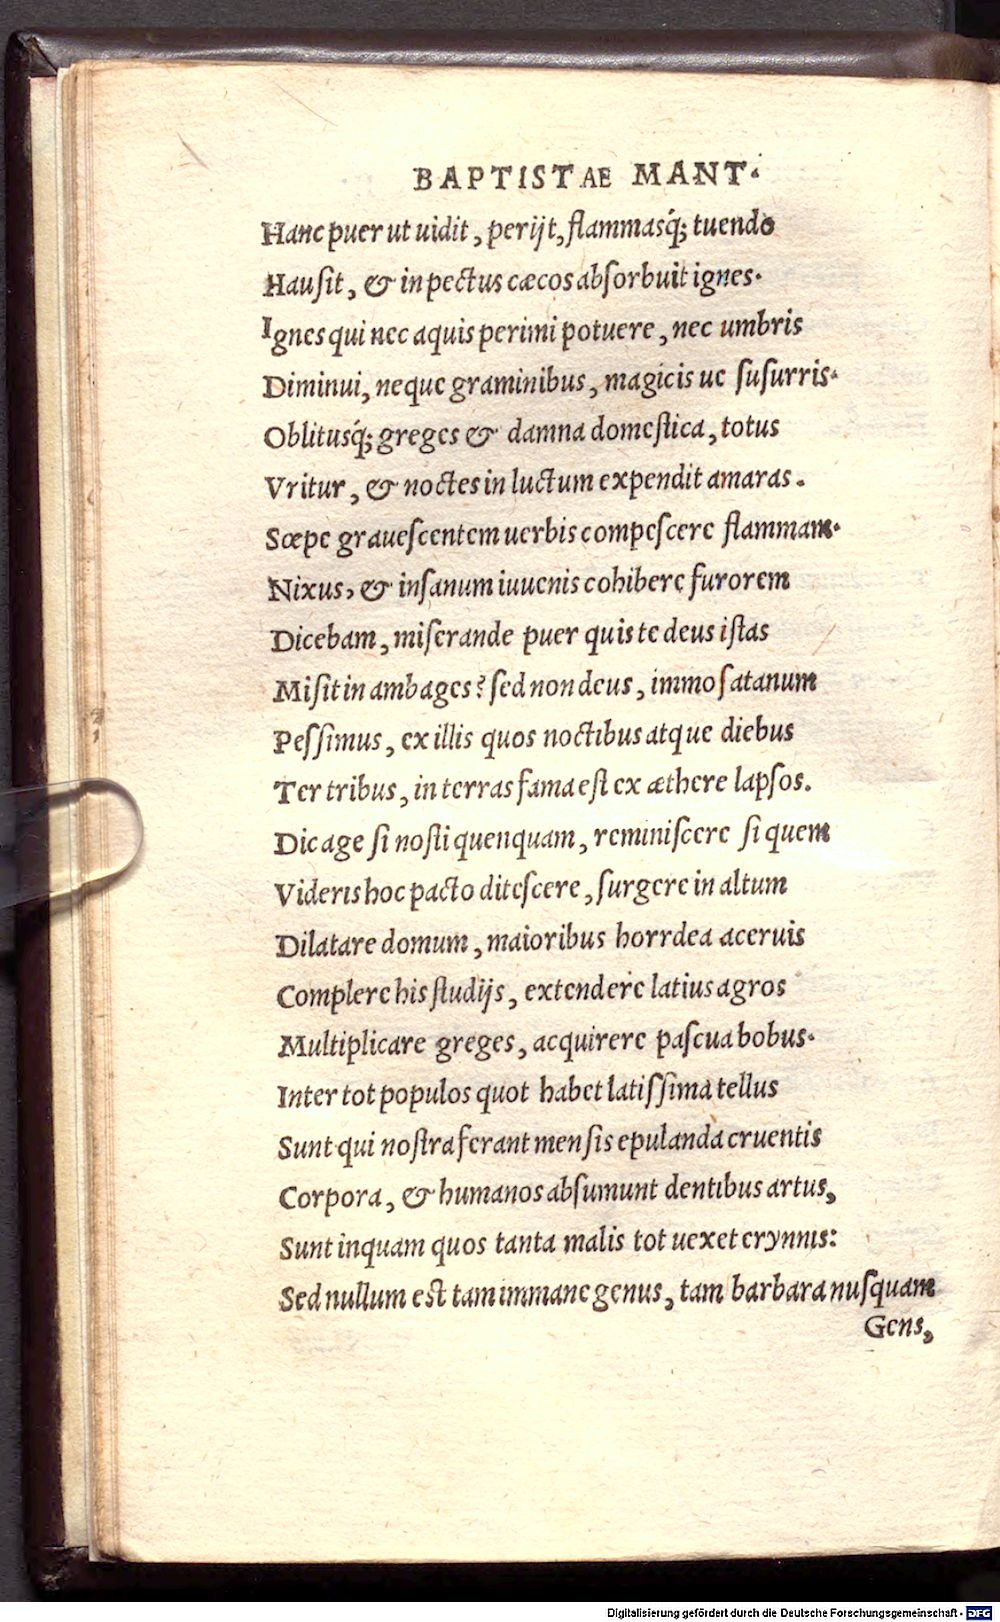 BAPTISTAE MANT.
Hanc puer ut uidit, perijt, flammasq́; tuendo
Hauſit, & in pectus cæcos abſorbuit ignes.
Ignes qui nec aquis perimi potuere, nec umbris
Diminui, neque graminibus, magicis ue ſuſurris.
Oblitusq́; greges & damna domeſtica, totus
Vritur, & noctes in luctum expendit amaras.
Sœpe graueſcentem uerbis compeſcere flammam.
Nixus, & inſanum iuuenis cohibere furorem
Dicebam, miſerande puer quis te deus iſtas
Miſit in ambages? ſed non deus, immo ſatanum
Peſſimus, ex illis quos noctibus atque diebus
Ter tribus, in terras fama eſt ex æthere lapſos.
Dic age ſi noſti quenquam, reminiſcere ſi quem
Videris hoc pacto diteſcere, ſurgere in altum
Dilatare domum, maioribus horrdea aceruis
Complere his ſtudijs, extendere latius agros
Multiplicare greges, acquirere paſcua bobus.
Inter tot populos quot habet latiſſima tellus
Sunt qui noſtra ferant menſis epulanda cruentis
Corpora, & humanos abſumunt dentibus artus,
Sunt inquam quos tanta malis tot uexet erynnis:
Sed nullum est tam immane genus, tam barbara nuſquam
Gens,
Digitalisierung gefördert durch die Deutsche Forschungsgemeinschaft - DFG